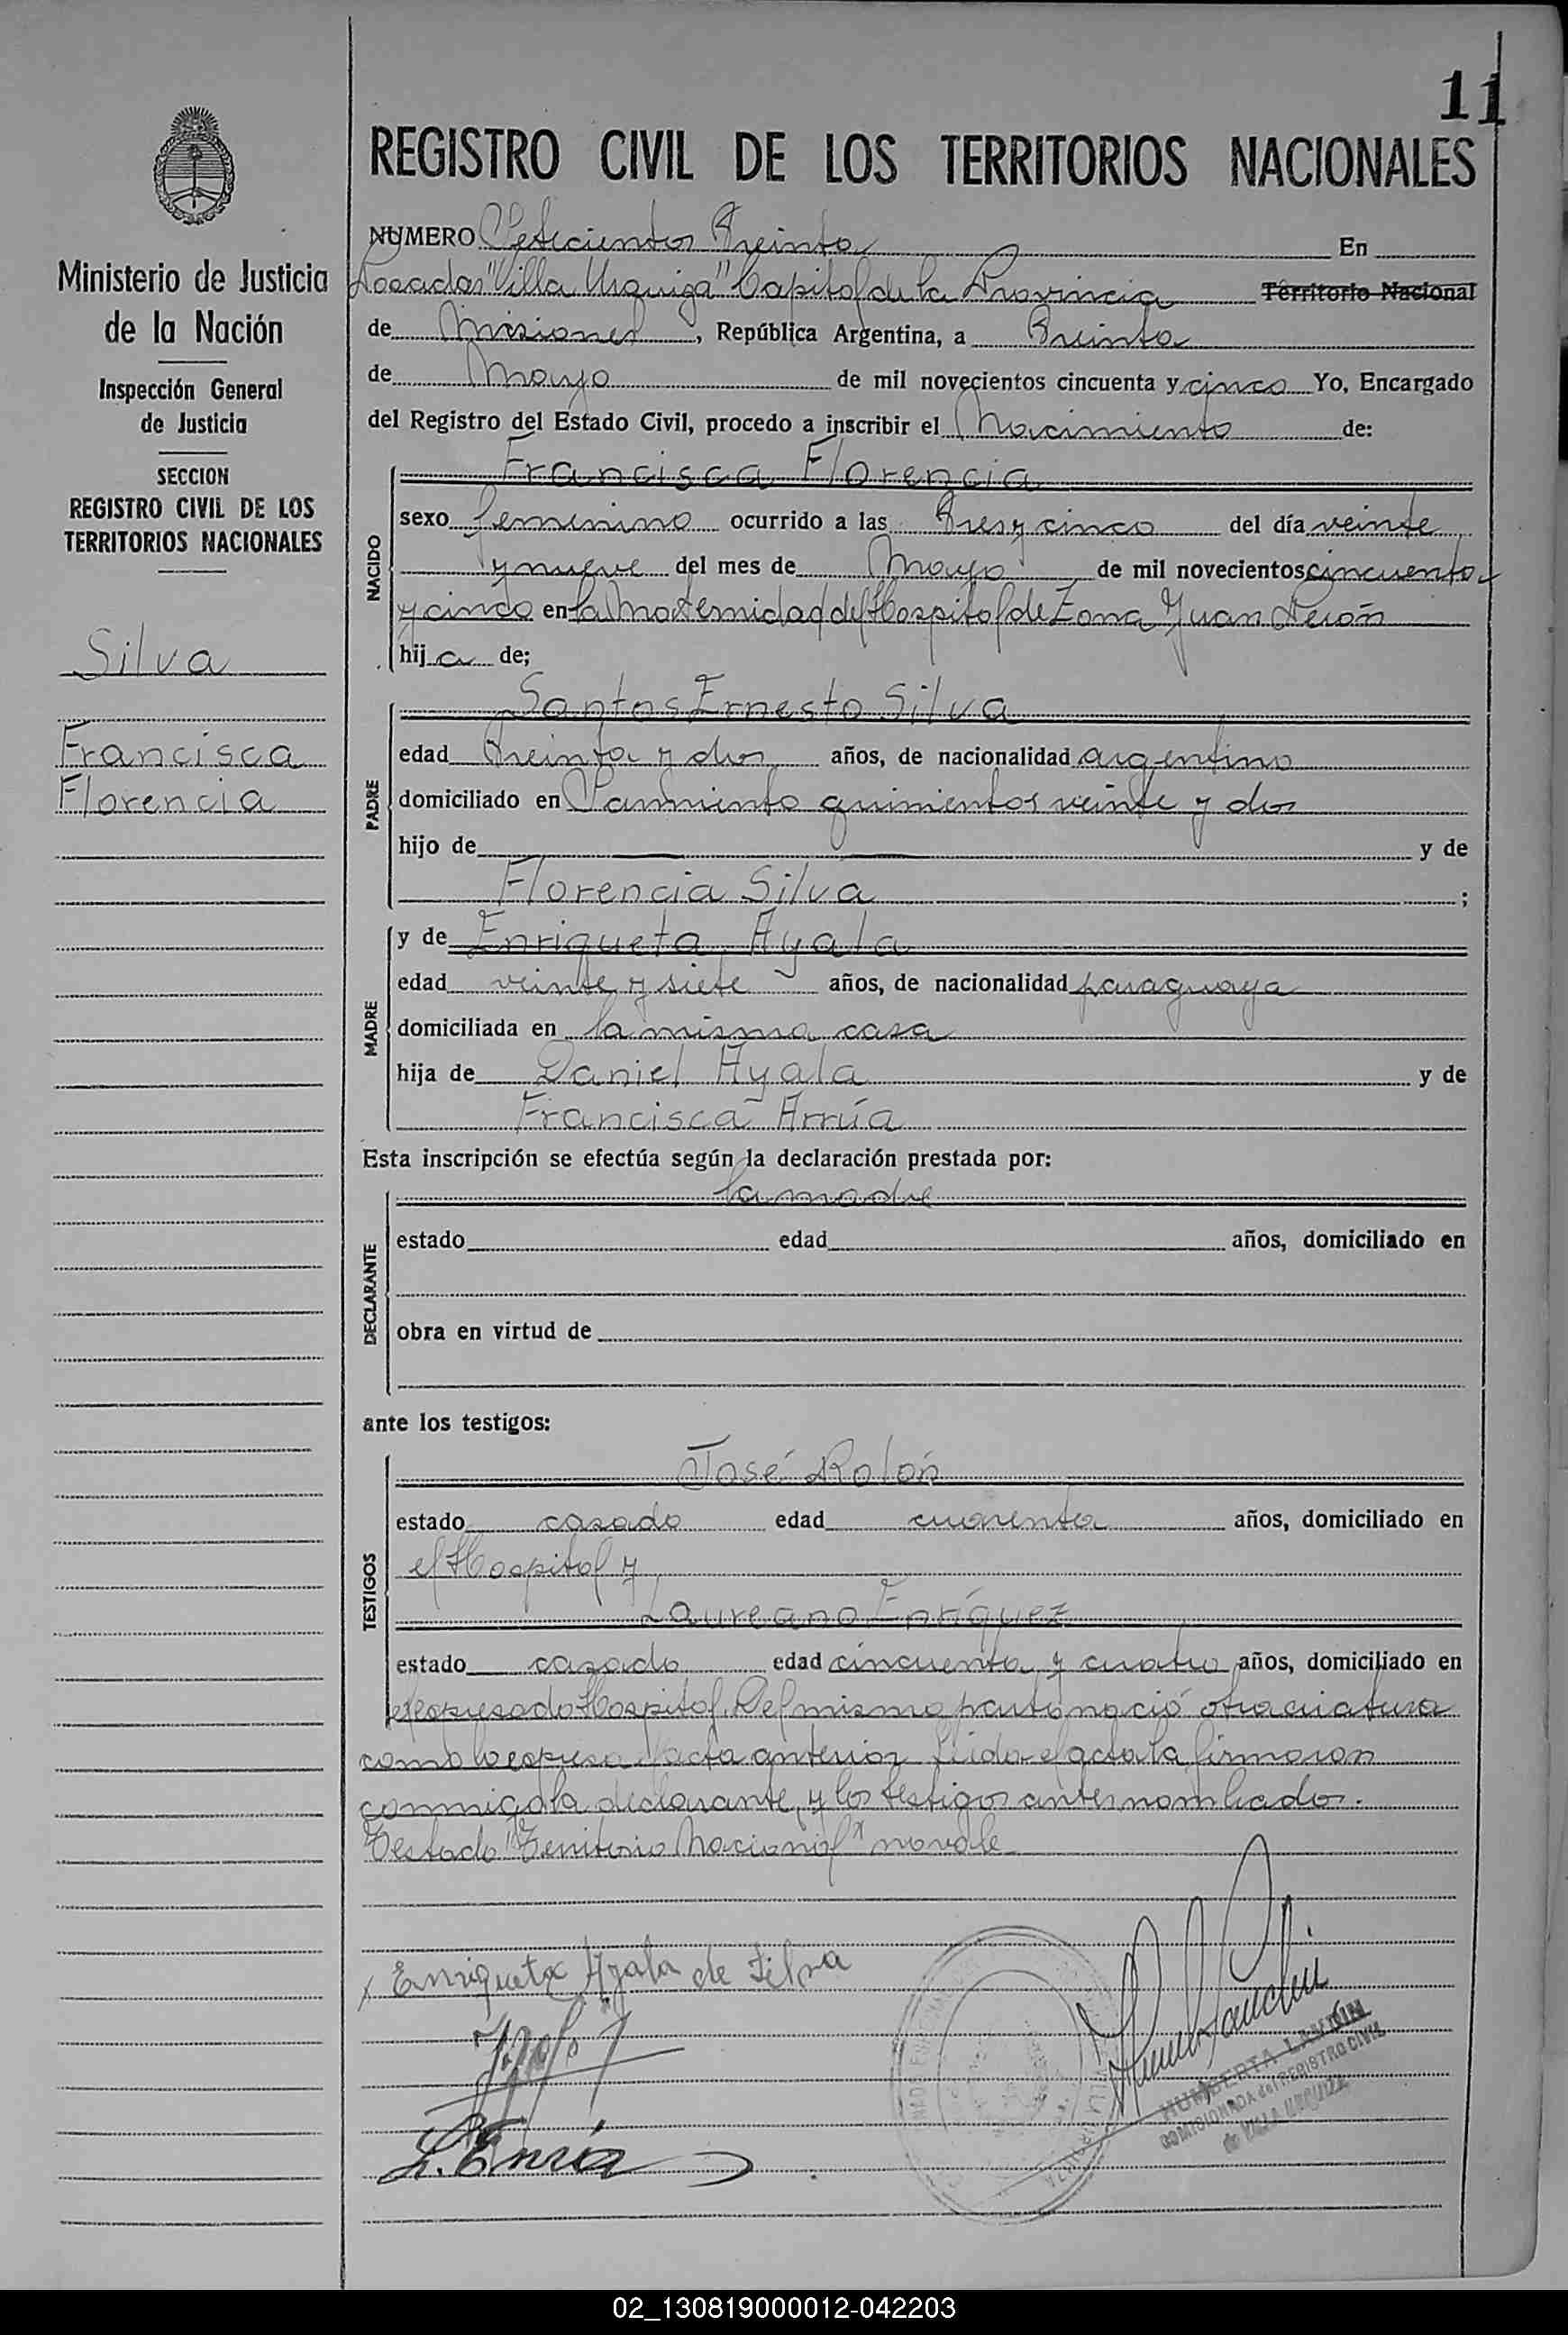 11
REGISTRO CIVIL DE LOS TERRITORIOS NACIONALES
Ministerio de Justicia
de la Nación
Inspección General
de Justicia
SECCION
REGISTRO CIVIL DE LOS
TERRITORIOS NACIONALES
Silva
Francisca
Florencia
NUMERO Setecientos Treinta En
Posadas "Villa Urquiza" Capital de la Provincia Territorio Nacional
de Misiones, República Argentina, a Treinta
de Mayo de mil novecientos cincuenta y cinco Yo, Encargado
del Registro del Estado Civil, procedo a inscribir el Nacimiento de:
NACIDO
Francisca Florencia
sexo femenino ocurrido a las Tres y cinco del día veinte
y nueve del mes de Mayo de mil novecientos cincuenta
y cinco en la Maternidad del Hospital de Zona Juan Perón
hija de;
PADRE
Santos Ernesto Silva
edad Treinta y dos años, de nacionalidad argentino
domiciliado en Sarmiento quinientos veinte y dos
hijo de y de
Florencia Silva ;
MADRE
y de Enriqueta Ayala
edad veinte y siete años, de nacionalidad paraguaya
domiciliada en la misma casa
hija de Daniel Ayala y de
Francisca Arrúa
Esta inscripción se efectúa según la declaración prestada por:
DECLARANTE
la madre
estado edad años, domiciliado en
obra en virtud de
ante los testigos:
TESTIGOS
José Rolón
estado casado edad cuarenta años, domiciliado en
el Hospital y
Laureano Enríquez
estado casado edad cincuenta y cuatro años, domiciliado en
el expresado Hospital. Del mismo parto nació otra criatura
como lo expresa el acta anterior. Leída el acta la firmaron
conmigo la declarante, y los testigos antes nombrados.
Testado "Territorio Nacional" no vale
x Enriqueta Ayala de Silva
L. Enrí
HUMBERTA LANTÓN
COMISIONADA del REGISTRO CIVIL
de VILLA URQUIZA
02_130819000012-042203